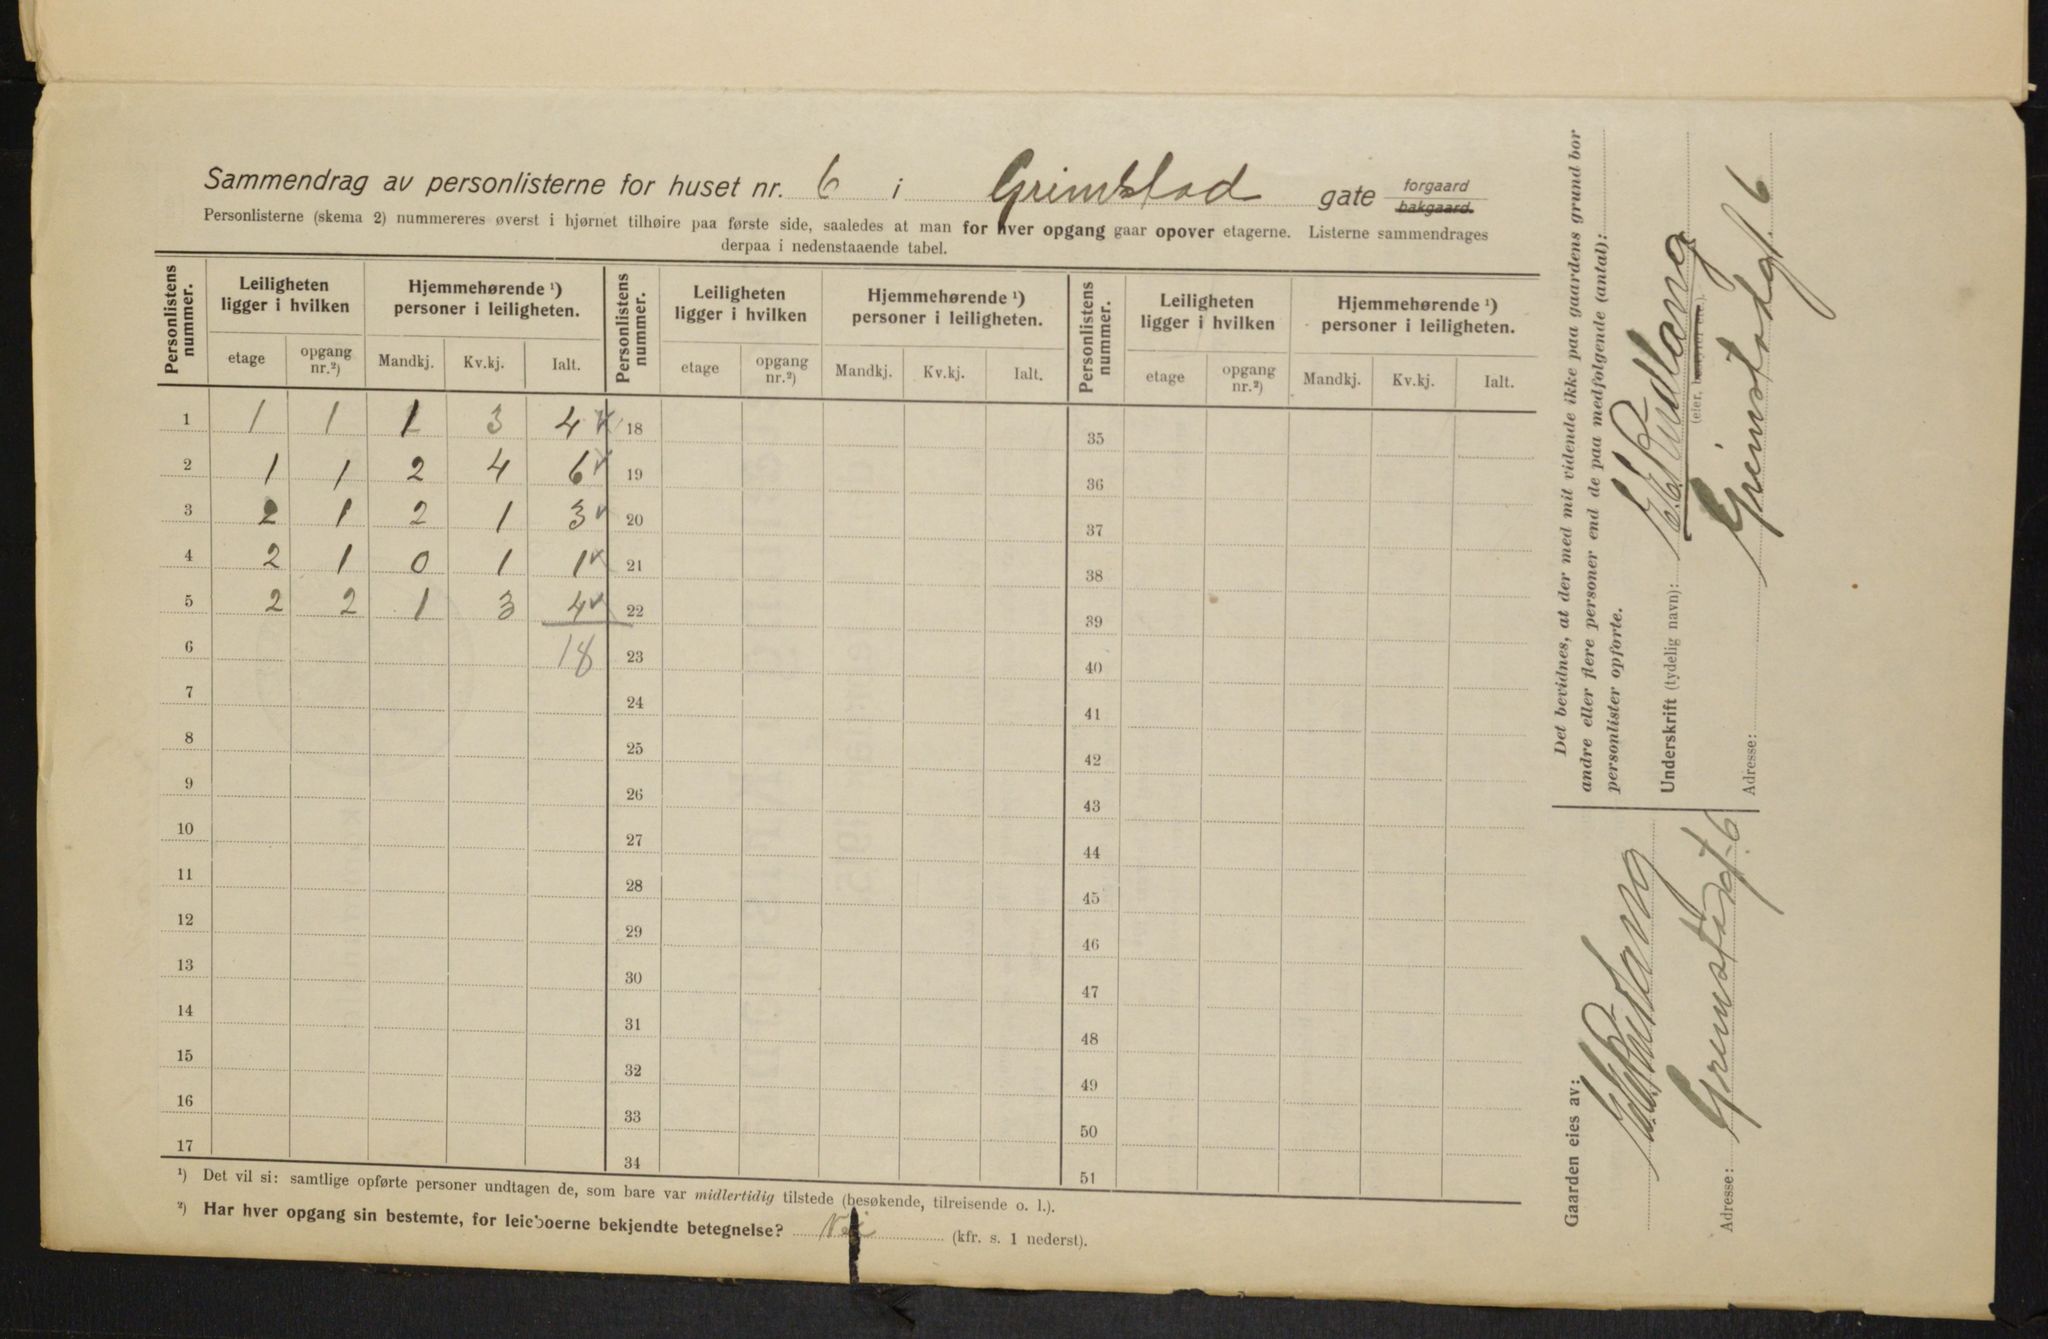 Sammendrag av personlisterne for huset nr. 6 i Grimstad gate forgaard
bakgaard.
Personlisterne (skema 2) nummereres øverst i hjørnet tilhøire paa første side, saaledes at man for hver opgang gaar opover etagerne. Listerne sammendrages
derpaa i nedenstaaende tabel.
Personlistens nummer. Leiligheten ligger i hvilken Hjemmehørende ¹) personer i leiligheten. Personlistens nummer. Leiligheten ligger i hvilken Hjemmehørende ¹) personer i leiligheten. Personlistens nummer. Leiligheten ligger i hvilken Hjemmehørende ¹) personer i leiligheten.
etage opgang nr.²) Mandkj. Kv.kj. Ialt. etage opgang nr.²) Mandkj. Kv.kj. Ialt. etage opgang nr.²) Mandkj. Kv.kj. Ialt.
1 1 1 1 3 4 18 35
2 1 1 2 4 6 19 36
3 2 1 2 1 3 20 37
4 2 1 0 1 1 21 38
5 2 2 1 3 4 22 39
6 18 23 40
7 24 41
8 25 42
9 26 43
10 27 44
11 28 45
12 29 46
13 30 47
14 31 48
15 32 49
16 33 50
17 34 51
¹) Det vil si: samtlige opførte personer undtagen de, som bare var midlertidig tilstede (besøkende, tilreisende o. l.).
²) Har hver opgang sin bestemte, for leieboerne bekjendte betegnelse? Nei (kfr. s. 1 nederst).
Det bevidnes, at der med mit vidende ikke paa gaardens grund bor
andre eller flere personer end de paa medfølgende (antal):
personlister opførte.
Underskrift (tydelig navn):
(eier, bestyrer etc.).
Adresse: Grimstadgt. 6
Gaarden eies av:
Adresse: Grimstadgt. 6